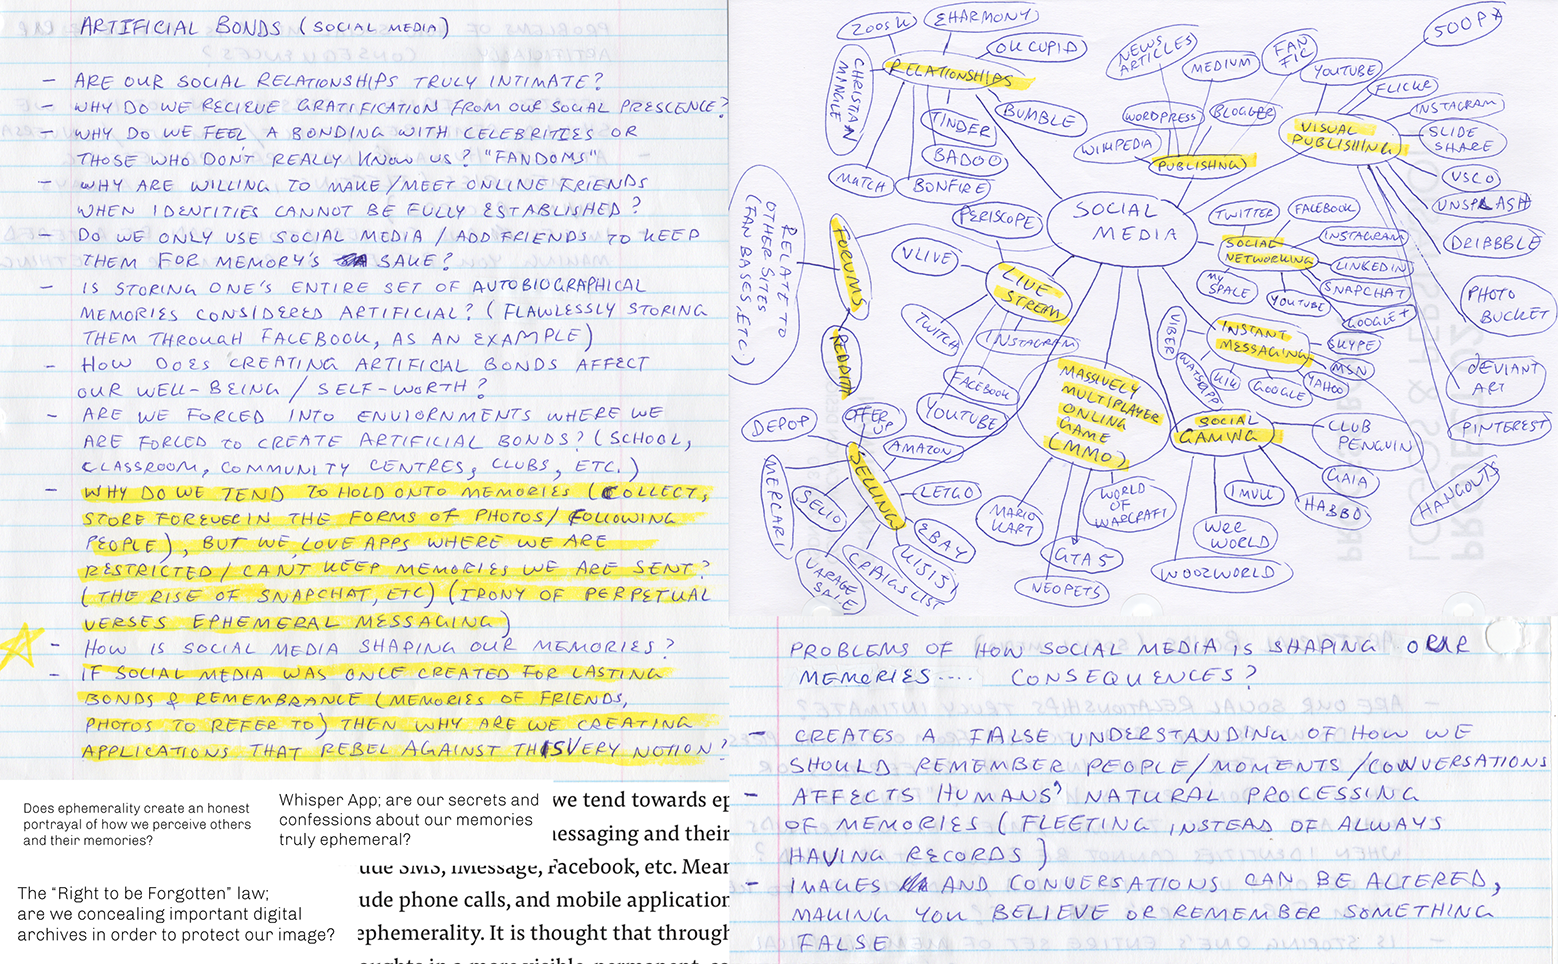 ARTIFICIAL BONDS (SOCIAL MEDIA)
- ARE OUR SOCIAL RELATIONSHIPS TRULY INTIMATE?
- WHY DO WE RECIEVE GRATIFICATION FROM OUR SOCIAL PRESCENCE?
- WHY DO WE FEEL A BONDING WITH CELEBRITIES OR
THOSE WHO DON'T REALLY KNOW US? "FANDOMS"
- WHY ARE WILLING TO MAKE/MEET ONLINE FRIENDS
WHEN IDENTITIES CANNOT BE FULLY ESTABLISHED?
- DO WE ONLY USE SOCIAL MEDIA / ADD FRIENDS TO KEEP
THEM FOR MEMORY'S SAKE?
- IS STORING ONE'S ENTIRE SET OF AUTOBIOGRAPHICAL
MEMORIES CONSIDERED ARTIFICIAL? (FLAWLESSLY STORING
THEM THROUGH FACEBOOK, AS AN EXAMPLE)
- HOW DOES CREATING ARTIFICIAL BONDS AFFECT
OUR WELL-BEING / SELF-WORTH?
- ARE WE FORCED INTO ENVIORNMENTS WHERE WE
ARE FORCED TO CREATE ARTIFICIAL BONDS? (SCHOOL,
CLASSROOM, COMMUNITY CENTRES, CLUBS, ETC.)
- WHY DO WE TEND TO HOLD ONTO MEMORIES (COLLECT,
STORE FOREVER IN THE FORMS OF PHOTOS/ FOLLOWING
PEOPLE), BUT WE LOVE APPS WHERE WE ARE
RESTRICTED/ CAN'T KEEP MEMORIES WE ARE SENT?
(THE RISE OF SNAPCHAT, ETC) (IRONY OF PERPETUAL
VERSES EPHEMERAL MESSAGING)
- HOW IS SOCIAL MEDIA SHAPING OUR MEMORIES?
- IF SOCIAL MEDIA WAS ONCE CREATED FOR LASTING
BONDS & REMEMBRANCE (MEMORIES OF FRIENDS,
PHOTOS TO REFER TO) THEN WHY ARE WE CREATING
APPLICATIONS THAT REBEL AGAINST THIS VERY NOTION?
Does ephemerality create an honest
portrayal of how we perceive others
and their memories?
Whisper App; are our secrets and
confessions about our memories
truly ephemeral?
The "Right to be Forgotten" law;
are we concealing important digital
archives in order to protect our image?
we tend towards ep
essaging and their
ude SMS, iMessage, Facebook, etc. Mear
ude phone calls, and mobile application
ephemerality. It is thought that through
SOCIAL
MEDIA
RELATIONSHIPS
ZOOSK
EHARMONY
OK CUPID
CHRISTIAN
MINGLE
MATCH
TINDER
BADOO
BONFIRE
BUMBLE
PUBLISHNG
NEWS
ARTICLES
MEDIUM
FAN
FIC
WORDPRESS
BLOGGER
WIKIPEDIA
VISUAL
PUBLISHING
YOUTUBE
500PX
FLICKR
INSTAGRAM
SLIDE
SHARE
VSCO
UNSPLASH
DRIBBBLE
PHOTO
BUCKET
DEVIANT
ART
PINTEREST
HANGOUTS
SOCIAL
NETWORKING
TWITTER
FACEBOOK
INSTAGRAM
LINKEDIN
SNAPCHAT
GOOGLE+
YOUTUBE
MY
SPACE
INSTANT
MESSAGING
VIBER
WATSAPP
KIK
GOOGLE
YAHOO
MSN
SKYPE
FORUMS
REDDIT
RELATE TO
OTHER SITES
(FAN BASES, ETC.)
LIVE
STREAM
PERISCOPE
VLIVE
TWITCH
INSTAGRAM
FACEBOOK
YOUTUBE
MASSIVELY
MULTIPLAYER
ONLINE
GAME
(MMO)
MARIO
KART
WORLD
OF
WARCRAFT
GTA 5
NEOPETS
SOCIAL
GAMING
CLUB
PENGUIN
GAIA
HABBO
IMVU
WEE
WORLD
WOOZWORLD
SELLING
DEPOP
OFFER
UP
AMAZON
LETGO
EBAY
KIJIJI
CRAIGSLIST
VARAGE
SALE
SELIO
MERCARI
PROBLEMS OF HOW SOCIAL MEDIA IS SHAPING OUR
MEMORIES.... CONSEQUENCES?
- CREATES A FALSE UNDERSTANDING OF HOW WE
SHOULD REMEMBER PEOPLE/MOMENTS/CONVERSATIONS
- AFFECTS HUMANS' NATURAL PROCESSING
OF MEMORIES (FLEETING INSTEAD OF ALWAYS
HAVING RECORDS)
- IMAGES AND CONVERSATIONS CAN BE ALTERED,
MAKING YOU BELIEVE OR REMEMBER SOMETHING
FALSE